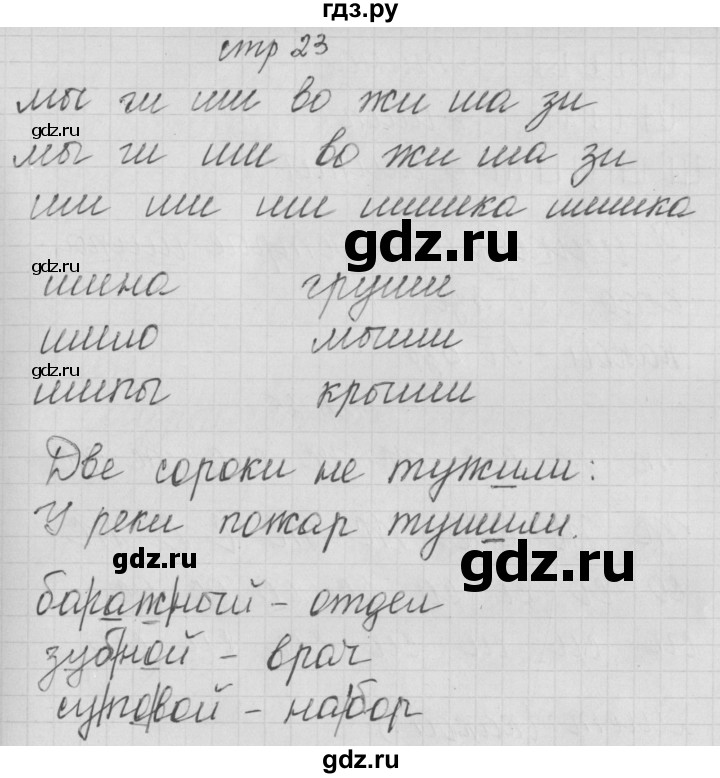 гдз.ру
стр 23
мы ги ши во жи ша зи
gdz.ru
мы ги ши во жи ша зи
gdz.ru
ши ши ши шишка шишка
gdz.ru
gdz.ru
шина груши
шило мыши
gdz.ru
шипы крыши
Две сороки не тужили:
У реки пожар тушили.
gdz.ru
gdz.ru
ба|раж|ный – отдел
зуб|ной – врач
су|по|вой – на|бор
gdz.ru
gdz.ru